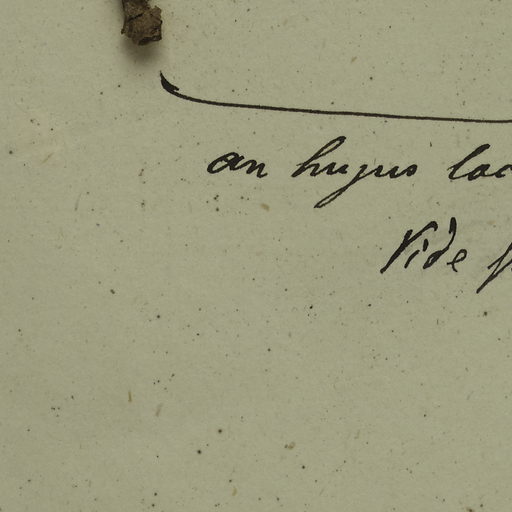 an hujus loc
Vide